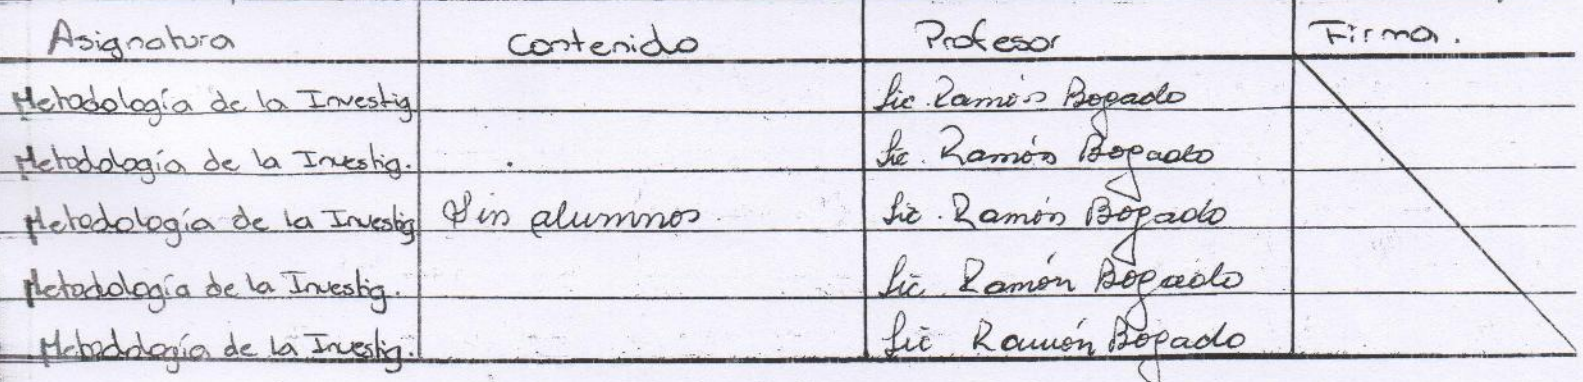 Asignatura Contenido Profesor Firma.
Metodología de la Investig. Lic. Ramón Bogado
Metodología de la Investig. Lic. Ramón Bogado
Metodología de la Investig Sin alumnos Lic. Ramón Bogado
Metodología de la Investig. Lic. Ramón Bogado
Metodología de la Investig. Lic Ramón Bogado